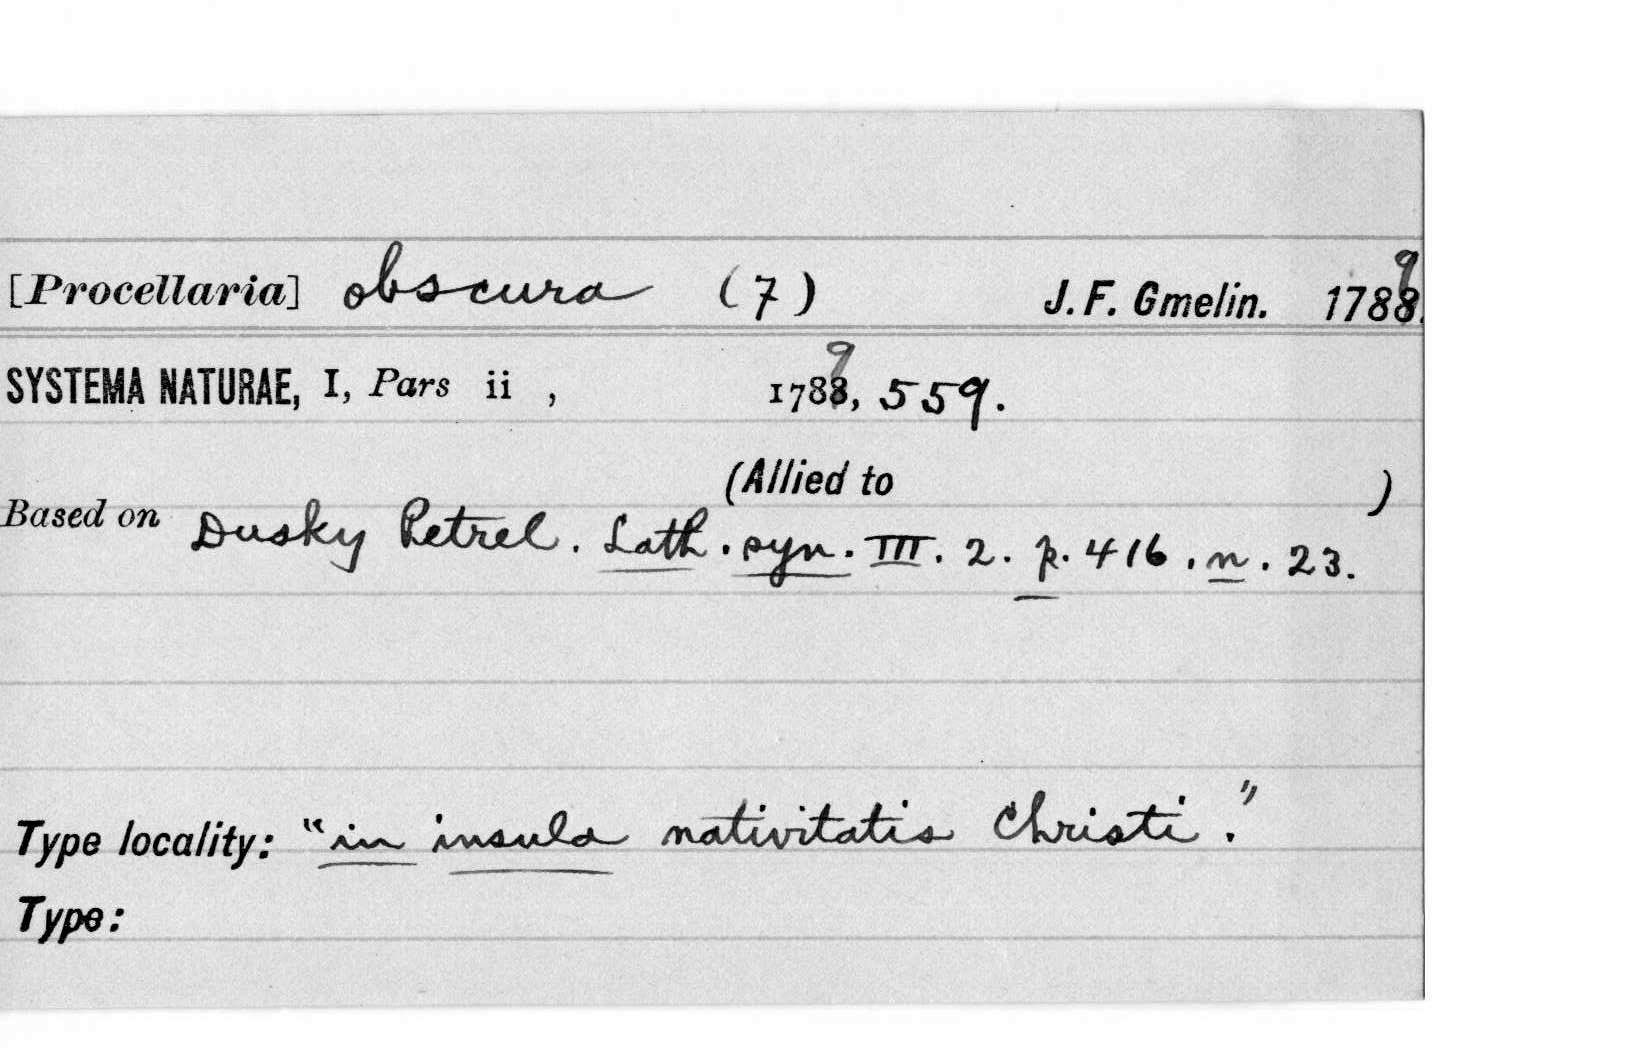 [Procellaria] obscura (7) J. F. Gmelin. 1789.
SYSTEMA NATURAE, I, Pars ii , 1789, 559.
(Allied to )
Based on Dusky Petrel. Lath. syn. III. 2. p. 416. n. 23.
Type locality: "in insula nativitatis Christi."
Type: